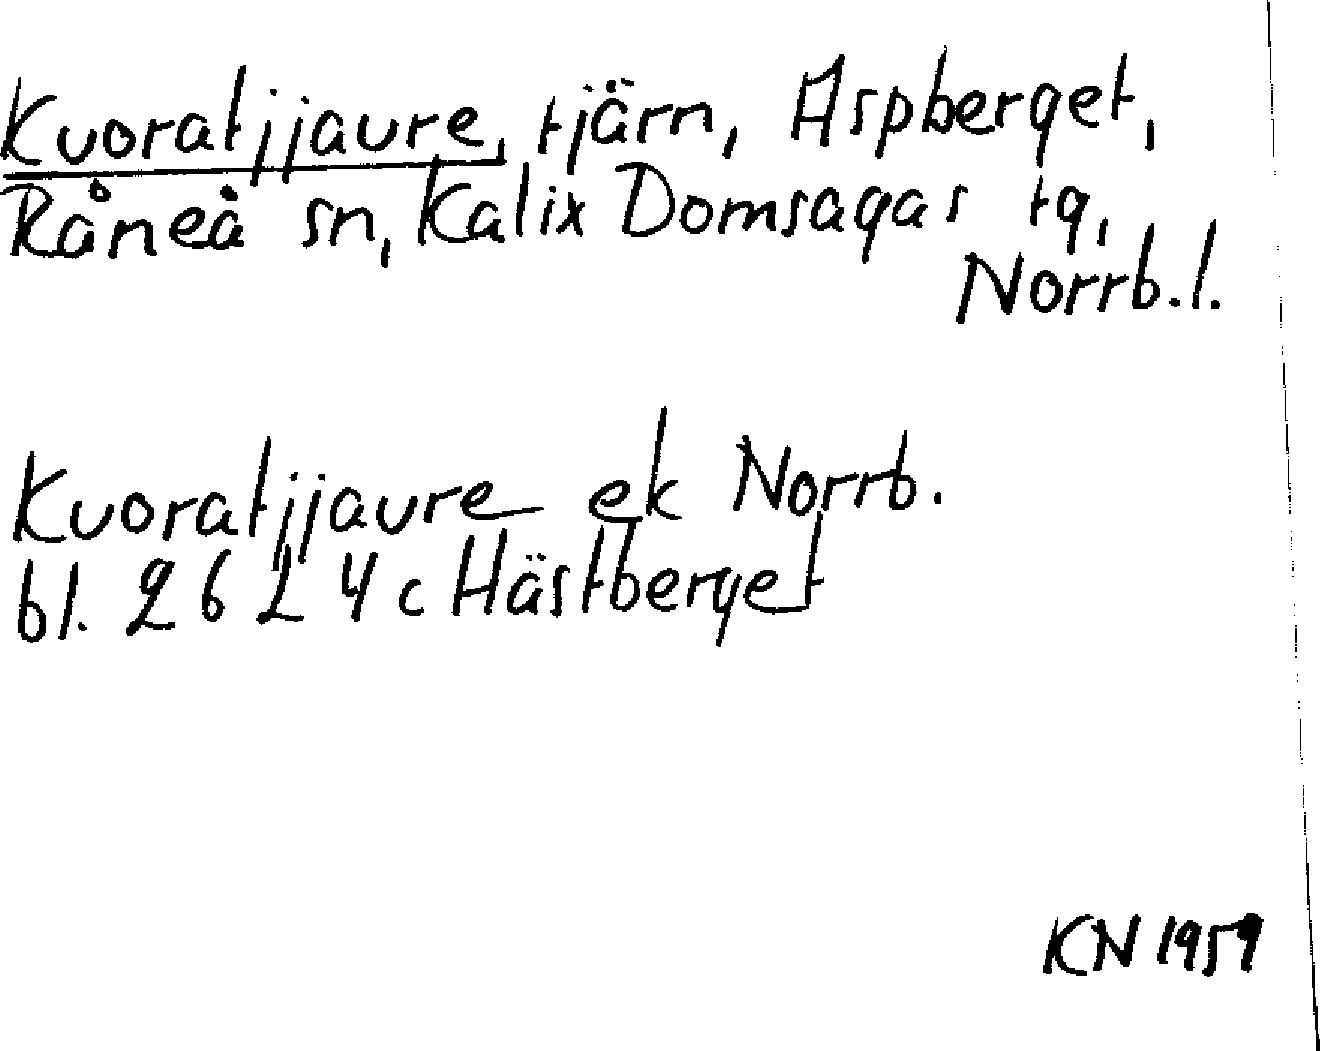 Kuoratjjaure, tjärn, Aspberget,
Råneå sn, Kalix Domsagas tg,
Norrb.l.
Kuoratjjaure ek Norrb.
bl. 26 L 4 c Hästberget
KN 1959